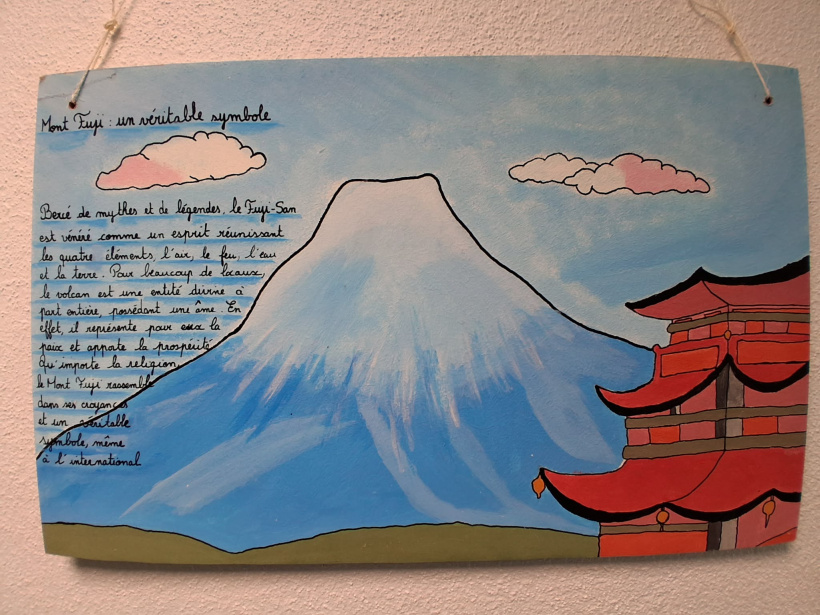 Mont Fuji : un véritable symbole
Bercé de mythes et de légendes, le Fuji-San
est vénéré comme un esprit réunissant
les quatre éléments, l'air, le feu, l'eau
et la terre. Pour beaucoup de locaux,
le volcan est une entité divine à
part entière, possédant une âme. En
effet, il représente pour eux la
paix et apporte la prospérité.
Qu'importe la religion,
le Mont Fuji rassemble
dans ses croyances
et un véritable
symbole, même
à l'international